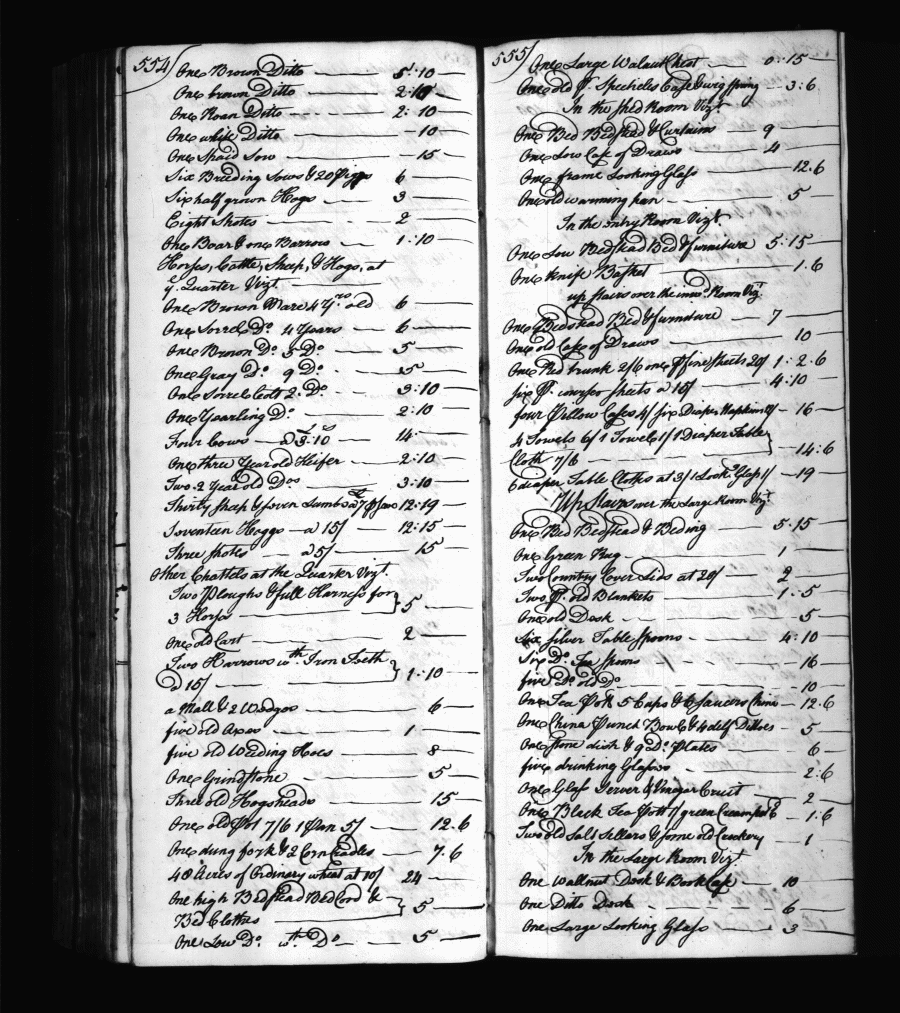 554
One Brown Ditto 5:10
One brown Ditto 2:10
One Roan Ditto 2:10
One white Ditto 10
One Spaid Sow 15
Six Breeding Sows & 20 Piggs 6
Six half grown Hogs 3
Eight Shotes 2
One Boar & one Barrow 1:10
Horses, Cattle, Sheep, & Hogs, at
ye. Quarter Vizt.
One Brown Mare 4 Yrs. old 6
One Sorrel Do. 4 Years 6
One Brown Do. 5 Do. 5
One Gray Do. 9 Do. 5
One Sorrel Colt 2 Do. 3:10
One Yearling Do. 2:10
Four Cows a 3:10 14
One three Year old Heifer 2:10
Two 2 Year old Dos 3:10
Thirty Sheep & seven Lambs a 7/ 12:19
Seventeen Hoggs a 15/ 12:15
Three shotes a 5/ 15
Other Chattels at the Quarter Vizt.
Two Ploughs & full Harness for
3 Horses } 5
One old Cart 2
Two Harrows wth Iron Teeth
a 15/ } 1:10
a Mall & 2 Wedges 6
five old Axes 1
five old Weeding Hoes 8
One Grindstone 5
Three old Hogsheads 15
One old Pot 7/6 1 Pan 5/ 12.6
One dung fork & 2 Corn Cradles 7.6
48 Acres of Ordinary wheat at 10/ 24
One high Bedstead Bed Cord &
Bed Clothes } 5
One Low Do. wth. Do 5
555
One Large Walnut Chest 0:15
One old P. Specticles Case & wig spring 3:6
In the shed Room Vizt.
One Bed Bedstead & Curtains 9
One Low Case of Draws 4
One frame Looking Glass 12.6
One old warming pan 5
In the Entry Room Vizt.
One Low Bedstead Bed & furniture 5:15
One Knife Basket 1.6
up stairs over the inwd. Room Vizt.
One Bedstead Bed & furniture 7
One old Case of Draws 10
One Red trunk 2/6 one P fine sheets 20/ 1:2.6
six P. courser sheets a 15/ 4:10
four Pillow Cases 4/ six Diaper Napkins 16
4 Towels 6/ 1 Towel 1/ 1 Diaper Table
Cloth 7/6 } 14:6
6 diaper Table Cloths at 3/ 1 Lookg Glass 1/ 19
Up Stairs over the Large Room Vizt.
One Bed Bedstead & Beding 5.15
One Green Rug 1
Two Country Cover Lids at 20/ 2
Two P. old Blankets 1:5
One old Desk 5
Six Silver Table Spoons 4:10
Six Do. Tea spoons 16
five Do. old Do 10
One Tea Pot 5 Cups & 6 Saucers China 12.6
One China Punch Bowl & 4 delf Dittoes 5
One stone dish & 9 Do. Plates 6
five drinking Glasses 2:6
One Glass Server & Vinegar Cruit 2
One Black Tea Pott 1/ green Creampot 6 1.6
Two old Salt Sellars & some old Crockery 1
In the Large Room Vizt.
One Wallnut Desk & Book Case 10
One Ditto Desk 6
One Large Looking Glass 3